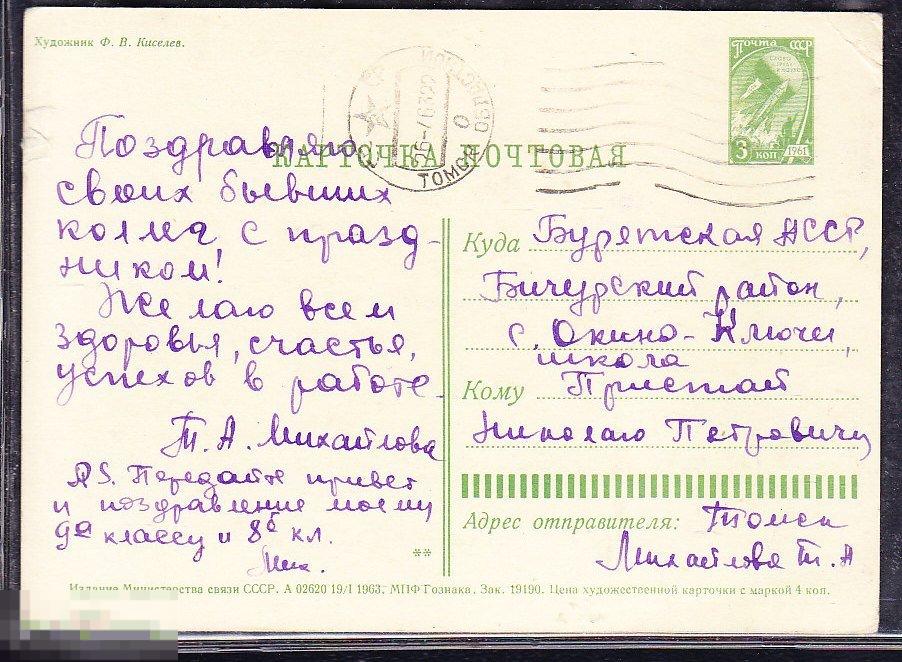 Художник Ф. В. Киселев.
Почта СССР
СЛАВА ТРУДУ И НАУКЕ
3 коп 1961
ТОМСК
КАРТОЧКА ПОЧТОВАЯ
Поздравляю
своих бывших
коллег с празд-
ником!
Желаю всем
здоровья, счастья,
успехов в работе.
Т. А. Михайлова
PS. Передайте привет
и поздравление моему
9а классу и 8б кл.
Мих.
**
Куда Бурятская АССР,
Бичурский район,
с. Окино-Ключи,
школа
Кому Пристай
Николаю Петровичу
Адрес отправителя: Томск
Михайлова Т. А
Издание Министерства связи СССР. А 02620 19/I 1963. МПФ Гознака. Зак. 19190. Цена художественной карточки с маркой 4 коп.